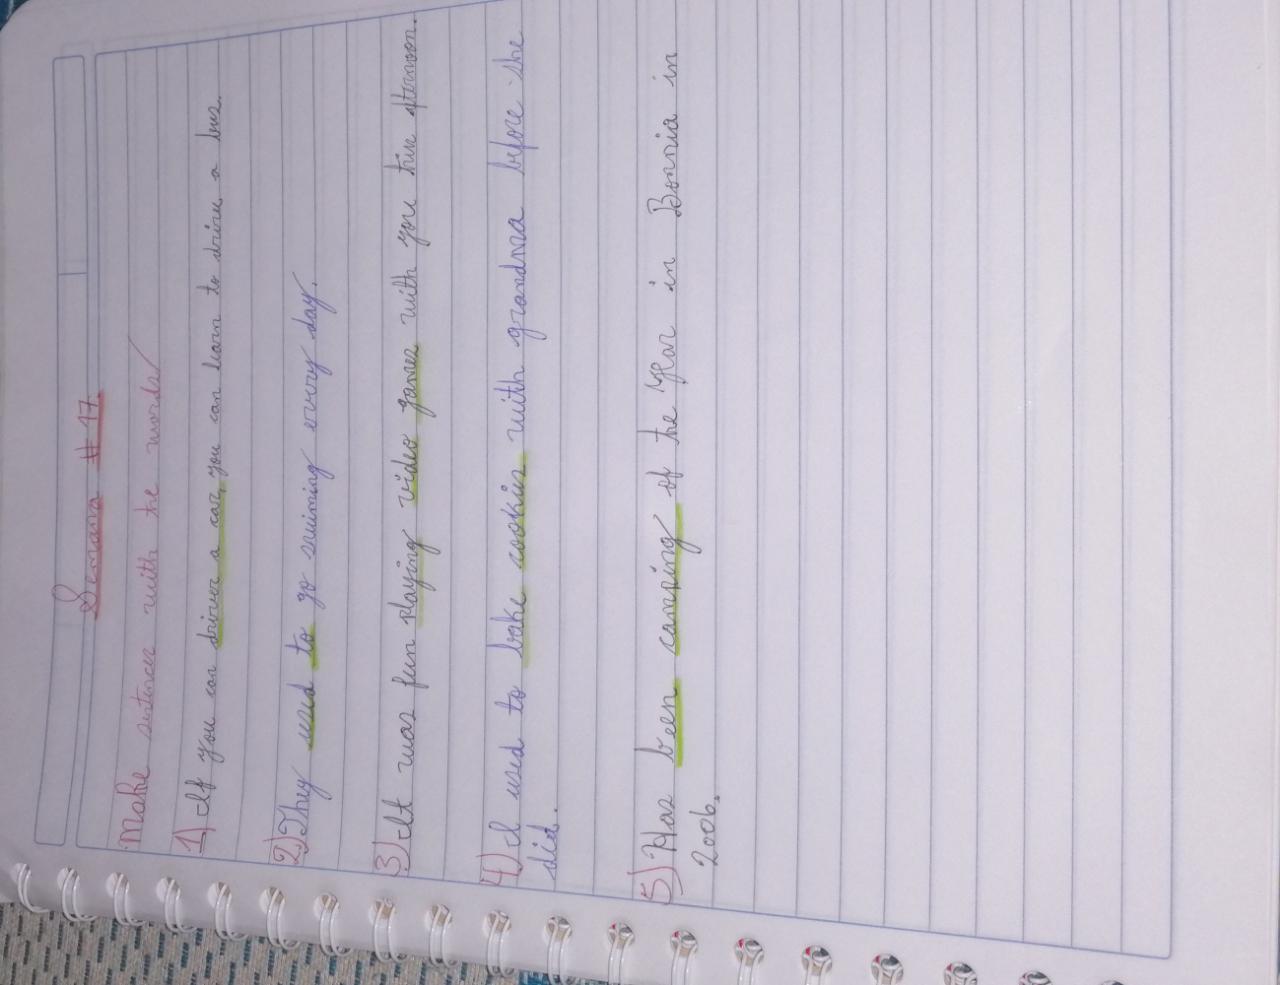 Semana # 17.
Make sentences with the words
1) If you can driver a car, you can learn to drive a bus.
2) They used to go swiming every day.
3) It was fun playing video games with you this afternoon.
4) I used to bake cookies with grandma before she
did.
5) Has been camping of the year in Bosnia in
2006.